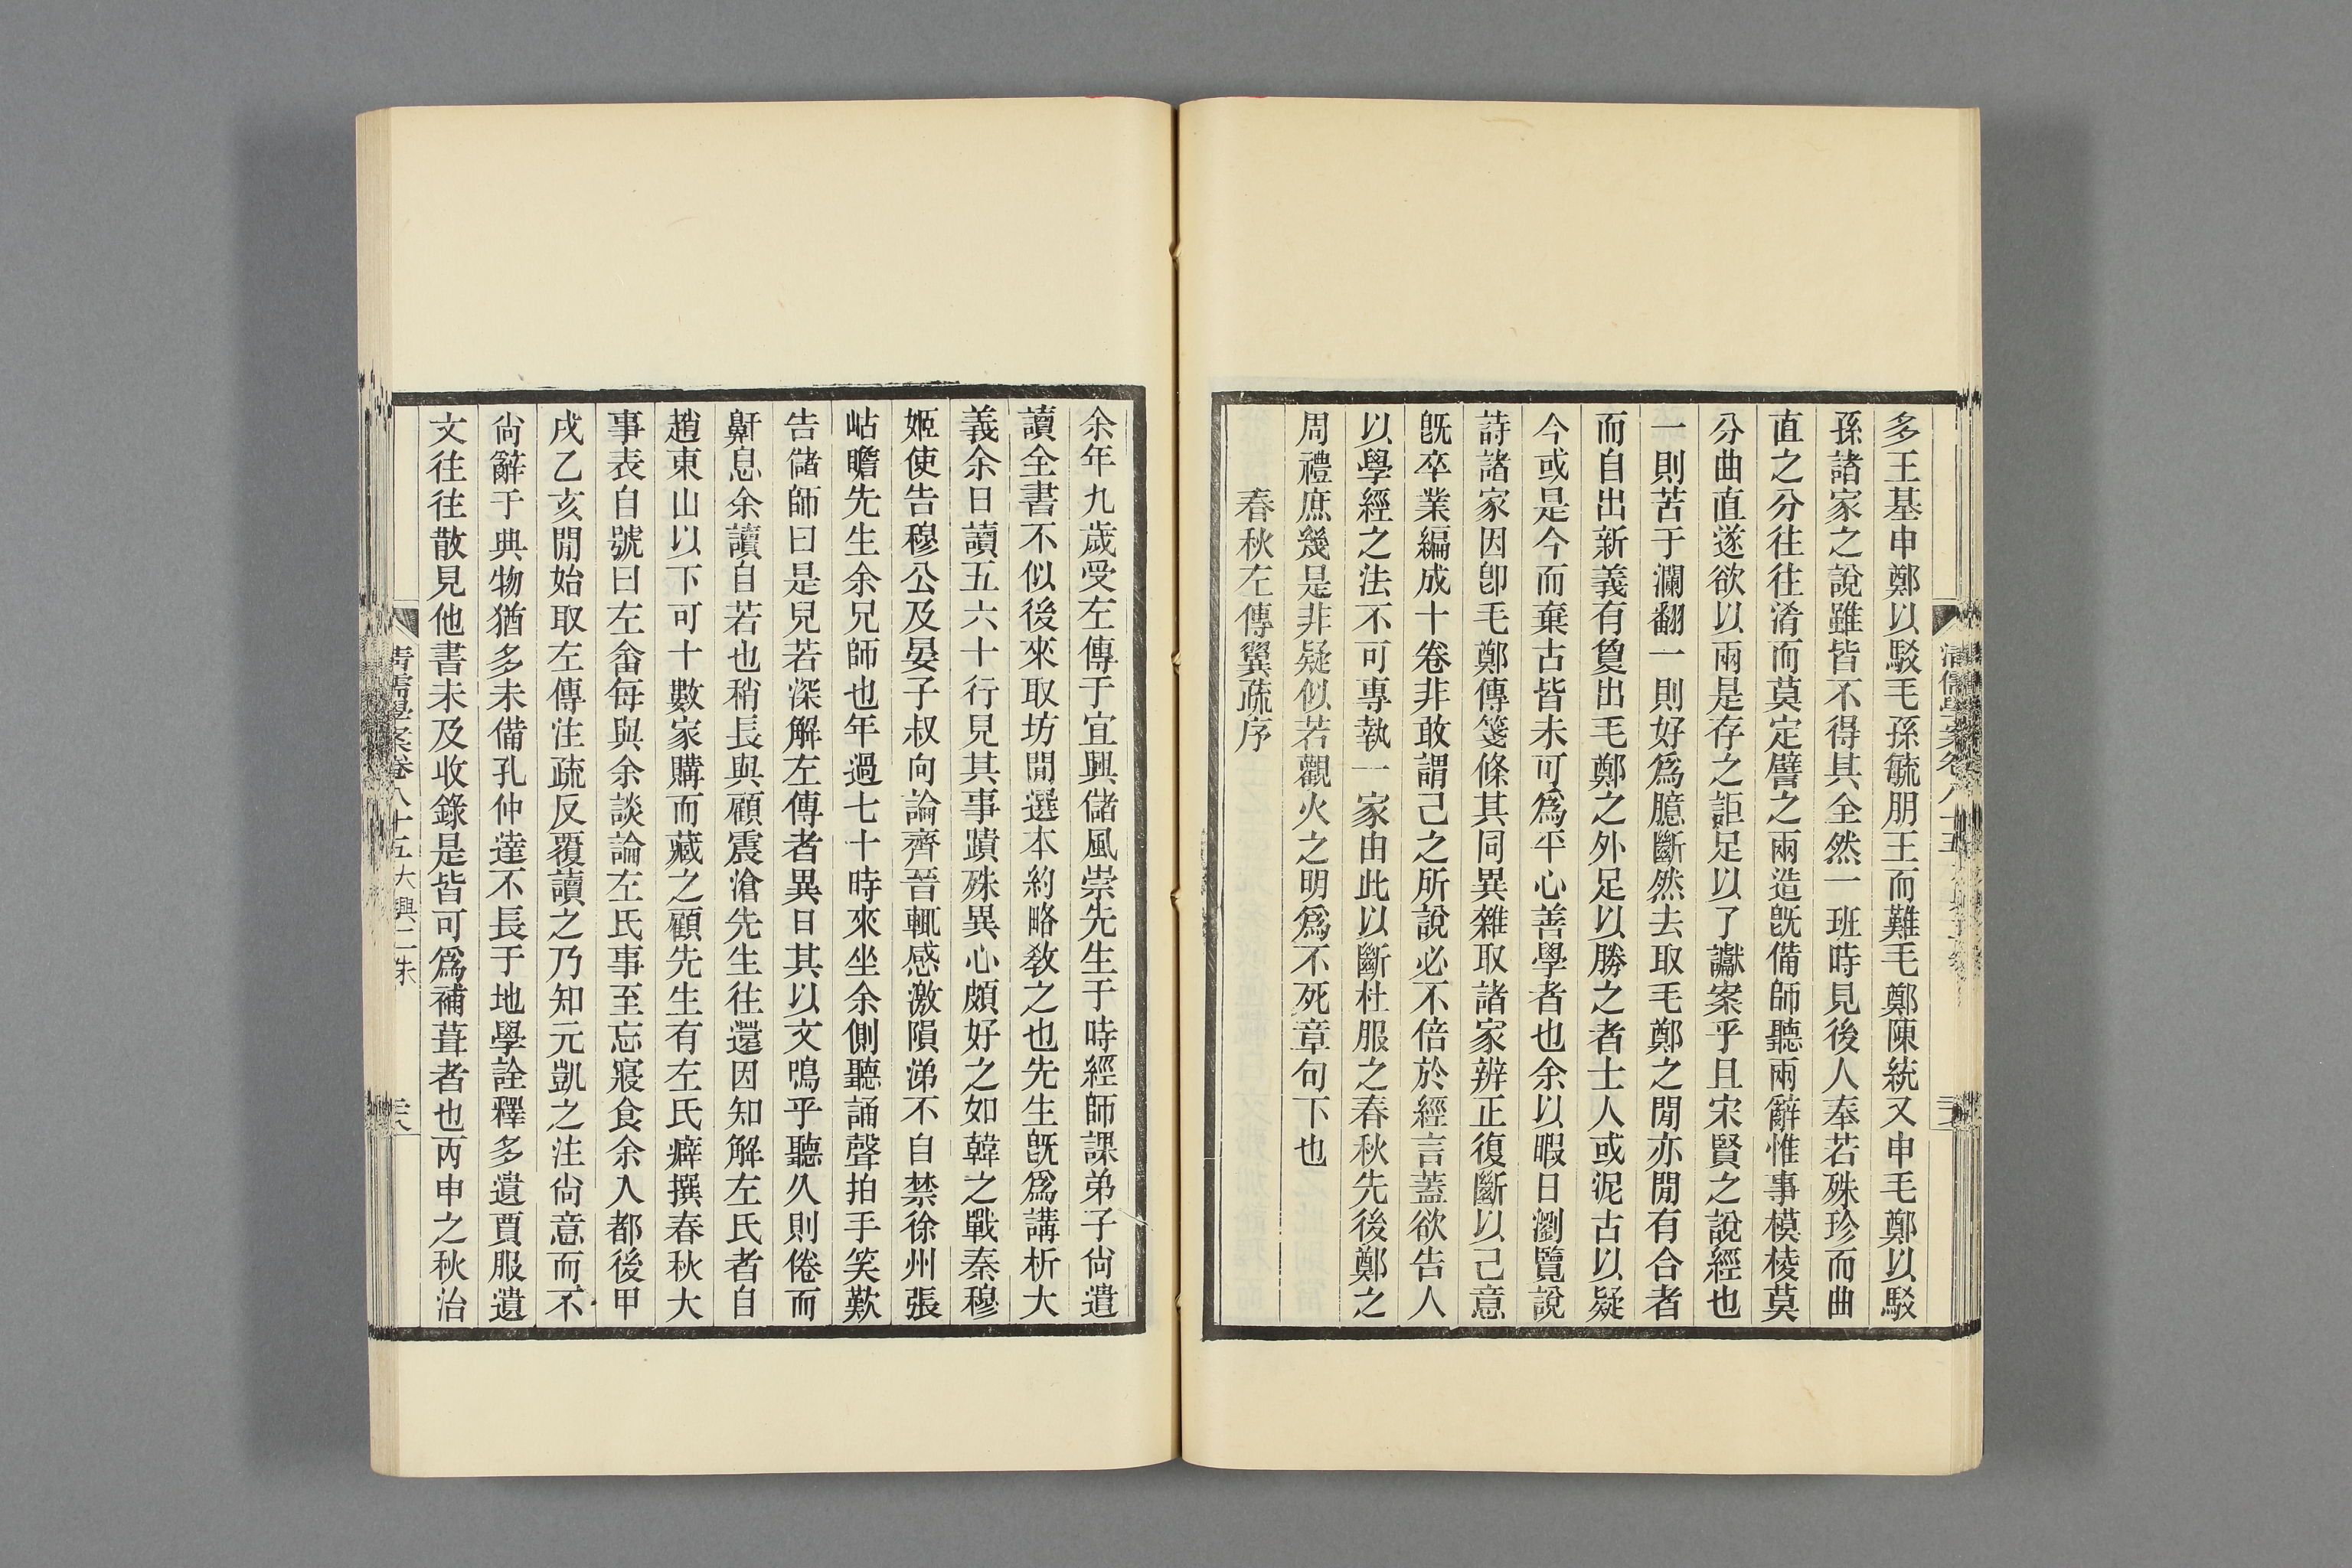 多王基申鄭以駁毛孫毓朋王而難毛鄭陳統又申毛鄭以駁
孫諸家之說雖皆不得其全然一班時見後人奉若殊珍而曲
直之分往往淆而莫定譬之兩造旣備師聽兩辭惟事模棱莫
分曲直遂欲以兩是存之詎足以了讞案乎且宋賢之說經也
一則苦于瀾翻一則好爲臆斷然去取毛鄭之閒亦閒有合者
而自出新義有敻出毛鄭之外足以勝之者士人或泥古以疑
今或是今而棄古皆未可爲平心善學者也余以暇日瀏覽說
詩諸家因卽毛鄭傳箋條其同異雜取諸家辨正復斷以己意
旣卒業編成十卷非敢謂己之所說必不倍於經言蓋欲告人
以學經之法不可專執一家由此以斷杜服之春秋先後鄭之
周禮庶幾是非疑似若觀火之明爲不死章句下也
春秋左傳翼疏序
余年九歲受左傳于宜興儲風崇先生于時經師課弟子尙遺
讀全書不似後來取坊閒選本約略敎之也先生旣爲講析大
義余日讀五六十行見其事蹟殊異心頗好之如韓之戰秦穆
姬使告穆公及晏子叔向論齊晉輒感激隕涕不自禁徐州張
岵瞻先生余兄師也年過七十時來坐余側聽誦聲拍手笑歎
告儲師曰是兒若深解左傳者異日其以文鳴乎聽久則倦而
鼾息余讀自若也稍長與顧震滄先生往還因知解左氏者自
趙東山以下可十數家購而藏之顧先生有左氏癖撰春秋大
事表自號曰左畬每與余談論左氏事至忘寢食余入都後甲
戌乙亥閒始取左傳注疏反覆讀之乃知元凱之注尙意而不
尙辭于典物猶多未備孔仲達不長于地學詮釋多遺賈服遺
文往往散見他書未及收錄是皆可爲補葺者也丙申之秋治
清儒學案卷八十五 大興二朱